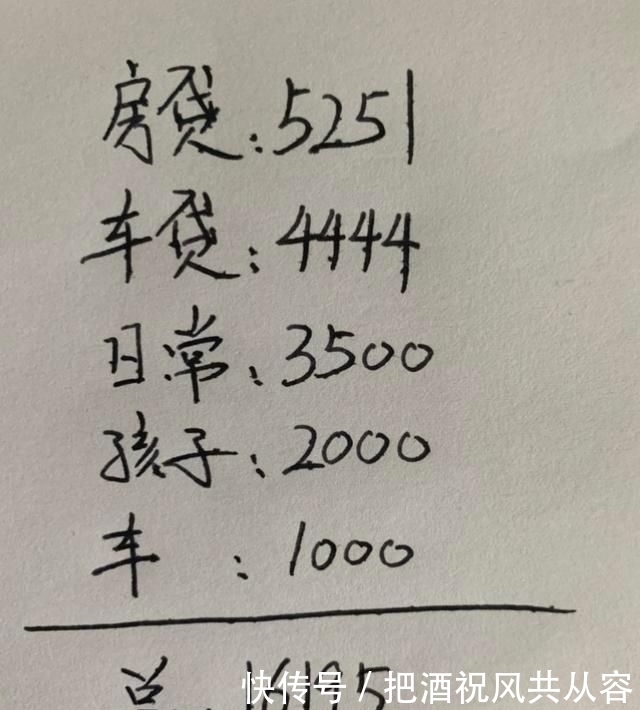 房贷:5251
车贷:4444
日常:3500
孩子:2000
车:1000
总
快传号/把酒祝风共从容